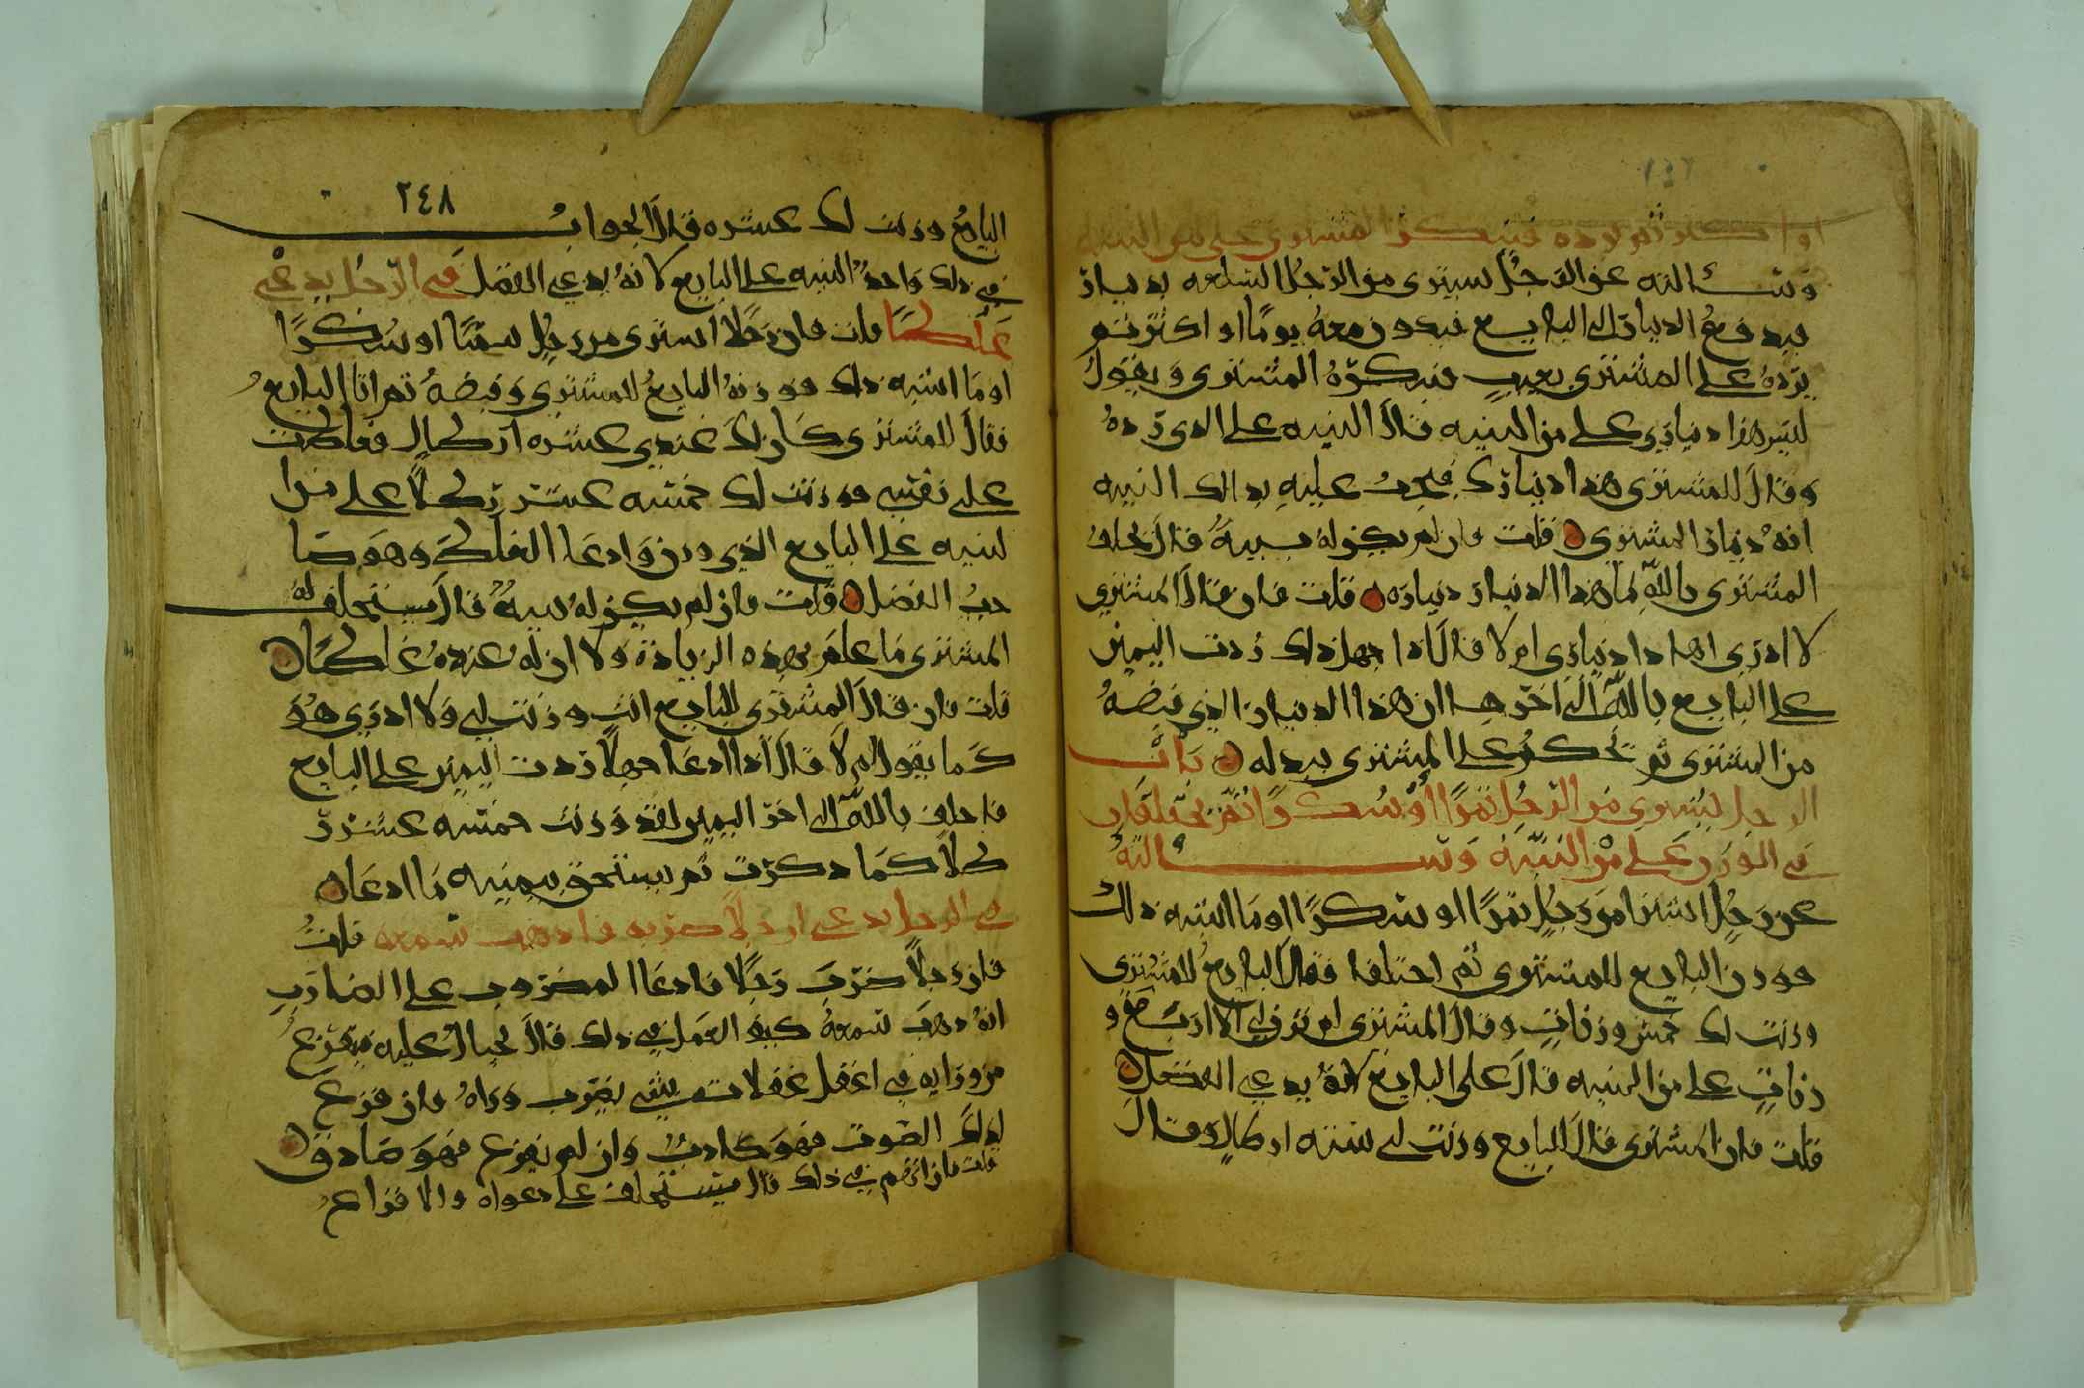 او اكثر ثم يرده فينكر المشتري على من البينه
وسالته عن الرجل يشتري من الرجل السلعه بدينار
فيدفع الدينار الى البايع فيكون معه يوما او اكثر ثم
يرده على المشتري بعيب فينكره المشتري ويقول
ليس هذا ديناري على من البينه قال البينه على الذي رده
وقال للمشتري هذا دينارك فيجب عليه بذالك البينه
انه دينار المشتري قلت فان لم يكن له بينة قال يحلف
المشتري بالله ما هذا الدينار ديناره قلت فان قال المشتري
لا ادري اهذا ديناري ام لا قال اذا جهل ذلك ردت اليمين
على البايع بالله الى اخرها ان هذا الدينار الذي قبضه
من المشتري ثم يحكم على المشتري ببدله باب
الرجل يشتري من الرجل تمرا او سكرا ثم يختلفان
في الوزن على من البينه وسالته
عن رجل اشترا من رجل تمرا او سكرا او ما اشبه ذلك
فوزن البايع للمشتري ثم اختلفا فقال البايع للمشتري
وزنت لك خمس وزنات وقال المشتري لم تزن لي الا اربع و
زنات على من البينه قال على البايع لانه يدعي الفضل
قلت فان المشتري قال للبايع وزنت لي سته ارطال وقال
٢٤٨
البايع وزنت لك عشره قال الجواب
في ذلك واحد البينه على البايع لانه يدعي الفضل في الرجل يدعي
غلطا قلت فان رجلا اشترى من رجل سمنا او سكرا
او ما اشبه ذلك فوزنه البايع للمشتري وقبضه ثم اتا البايع
فقال للمشتري كان لك عندي عشره ارطال فغلطت
على نفسي فوزنت لك خمسه عشر رطلا على من ا
لبينه على البايع الذي وزن وادعا الغلط وهو صا
حب الفضل قلت فان لم يكن له بينة قال يستحلف له
المشتري ما علم بهذه الزيادة ولا ان له عنده غلطا
قلت فان قال المشتري للبايع انت وزنت لي ولا ادري هو
كما يقول ام لا قال اذا ادعا جهلا ردت اليمين على البايع
فاحلف بالله الى اخر اليمين لقد وزنت خمسه عشر ر
طلا كما ذكرت ثم يستحق بيمينه ما ادعا
في الرجل يدعي ان رجلا ضربه فاذهب سمعه قلت
فان رجلا ضرب رجلا فادعا المضروب على الضارب
انه ذهب سمعه كيف العمل في ذلك قال يحتال عليه فيقرع
من ورايه في اغفل غفلاته بشي يضرب وراه فان فزع
لذلك الصوت فهو كاذب وان لم يفزع فهو صادق
قلت فان اتهم في ذلك قال يستحلف على دعواه والا فزاع